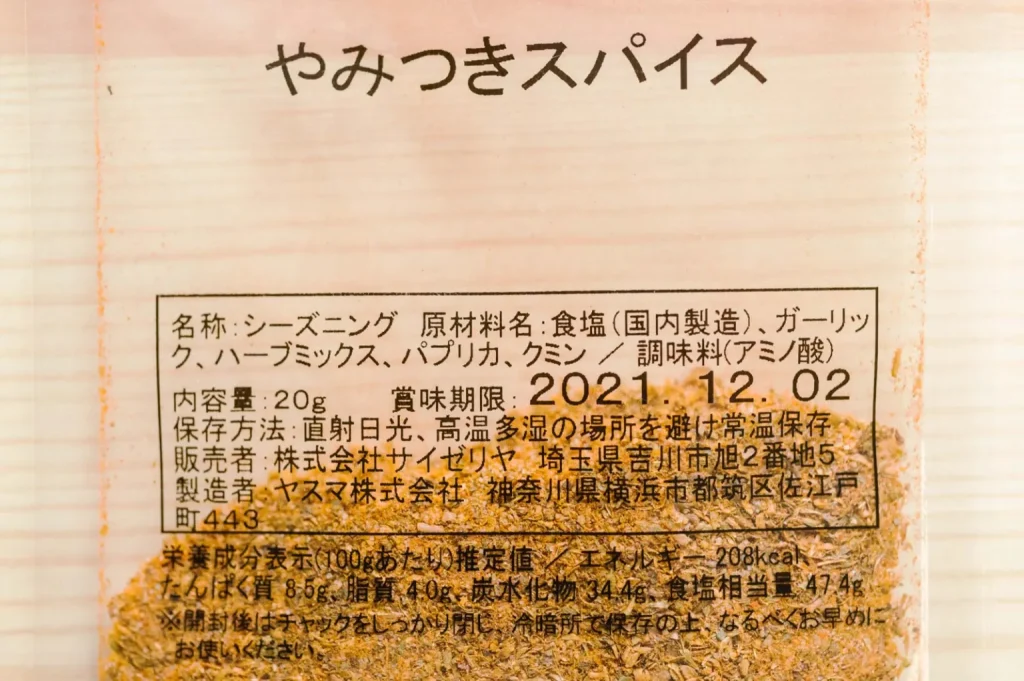 やみつきスパイス
名称:シーズニング 原材料名:食塩(国内製造)、ガーリッ
ク、ハーブミックス、パプリカ、クミン / 調味料(アミノ酸)
内容量:20g 賞味期限:2021.12.02
保存方法:直射日光、高温多湿の場所を避け常温保存
販売者:株式会社サイゼリヤ 埼玉県吉川市旭2番地5
製造者:ヤスマ株式会社 神奈川県横浜市都筑区佐江戸
町443
栄養成分表示(100gあたり)推定値 / エネルギー 208kcal、
たんぱく質 8.5g、脂質 4.0g、炭水化物 34.4g、食塩相当量 47.4g
※開封後はチャックをしっかり閉じ、冷暗所で保存の上、なるべくお早めに
お使いください。